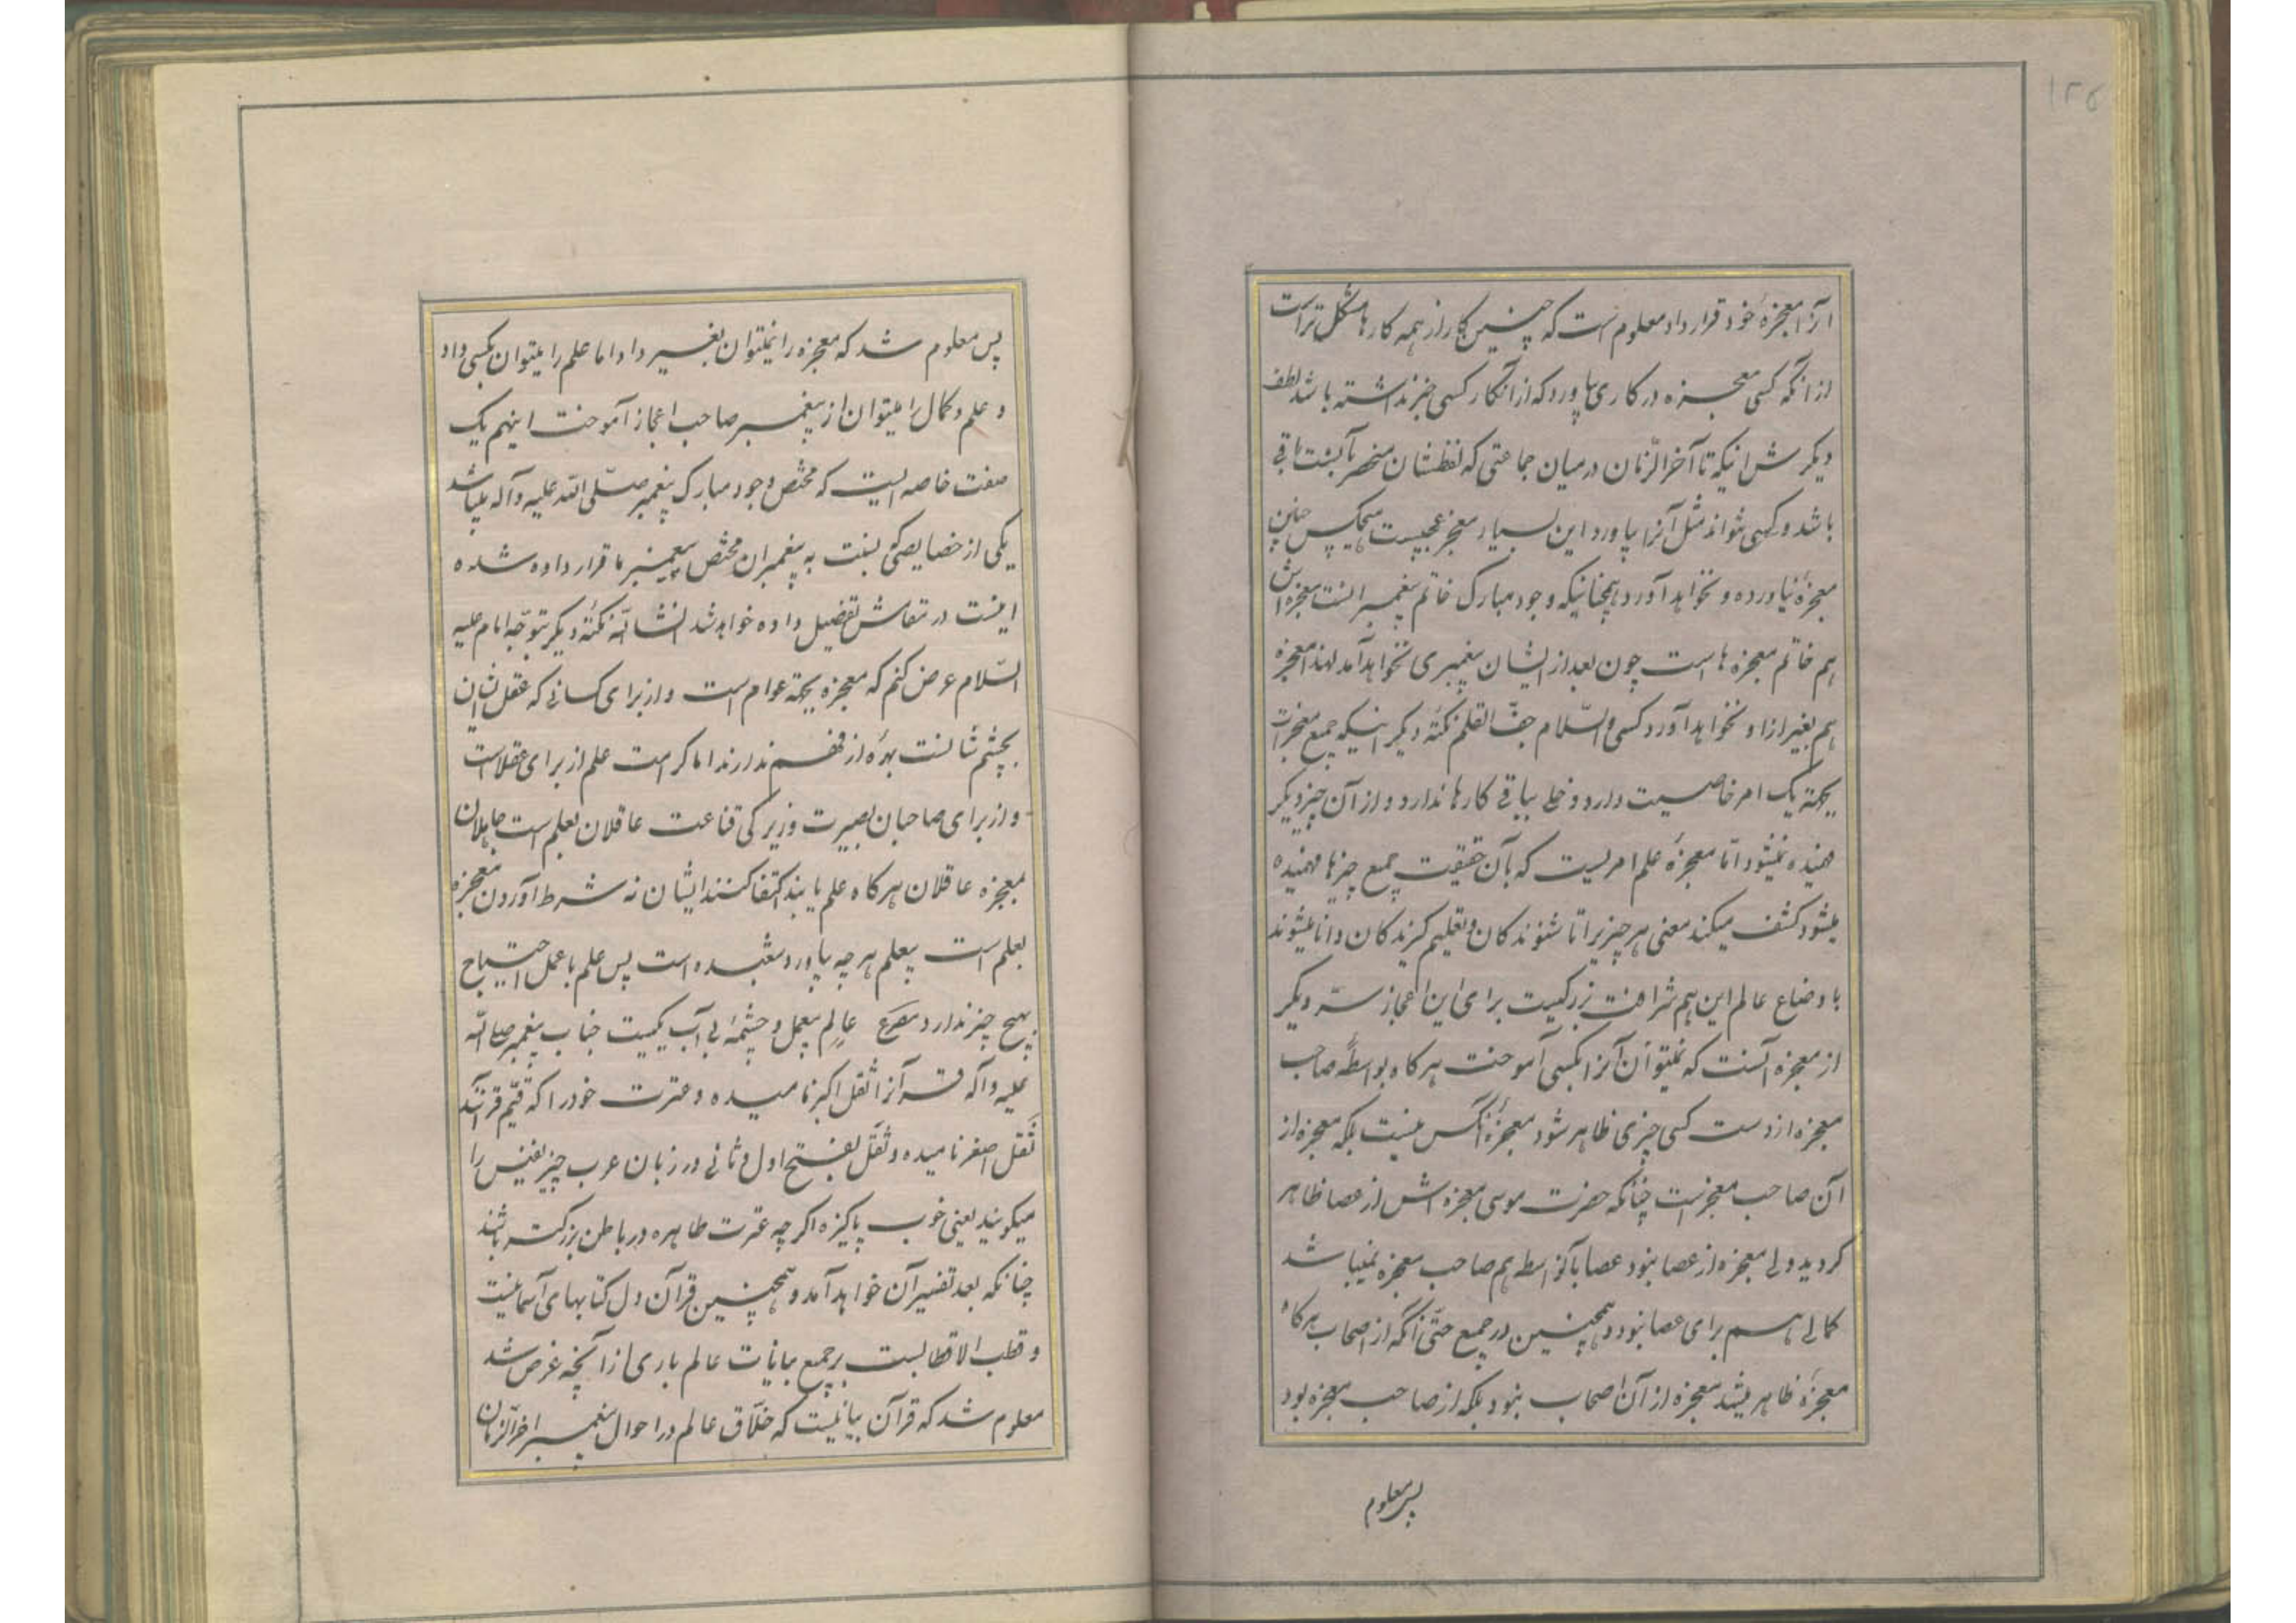 ۱۲۵
آنرا معجزهٔ خود قرار داد معلومست که چنین کار از همه کارها مشکل تر است
از انکه کسی معجزه در کاری بیاورد که از انکار کسی خبر نداشته باشد لطف
دیکرش اینکه تا آخر الزّمان در میان جماعتی که لفظشان منحصر بآنست باقی
باشد و کسی نتواند مثل آنرا بیاورد این بسیار معجز عجیبست هیچکس چنین
معجزهٔ نیاورده و نخواهد آورد همچنانیکه وجود مبارک خاتم پیغمبرانست معجزه اش
هم خاتم معجزه هاست چون بعد از ایشان پیغمبری نخواهد آمد لهذا معجزه
هم بغیر ازاو نخواهد آورد کسی والسّلام جفّ القلم نکتهٔ دیکر اینکه جمیع معجزات
بجهة یک امر خاصیت دارد دخلی بباقی کارها ندارد و از آن چیز دیکر
فهمیده نمیشود امّا معجزهٔ علم امریست که بآن حقیقت جمیع چیزها فهمیده
میشود کشف میکند معنی هر چیزیرا تا شنوندکان و تعلیم کیرندکان دانا میشوند
باوضاع عالم این هم شرافت بزرکیست برای این اعجاز سرّ دیکر
از معجزه آنست که نمیتوان آنرا بکسی آموخت هر کاه بواسطهٔ صاحب
معجزه از دست کسی چیزی ظاهر شود معجزهٔ آنکس نیست بلکه معجزه از
آن صاحب معجزست چنانکه حضرت موسی معجزه اش از عصا ظاهر
کردید ولی معجزه از عصا نبود عصا بآنواسطه هم صاحب معجزه نمیباشد
کمالی هم برای عصا نبود و همچنین در جمیع حتّی آنکه از اصحاب هرکاه
معجزهٔ ظاهر میشد معجزه از آن اصحاب نبود بلکه از صاحب معجزه بود
پس معلوم
پس معلوم شد که معجزه را نمیتوان بغیر داد اما علم را میتوان بکسی داد
و علم و کمال را میتوان از پیغمبر صاحب اعجاز آموخت اینهم یک
صفت خاصه ایست که مختص وجود مبارک پیغمبر صلّی الله علیه و آله میباشد
یکی از خصایصی که نسبت به پیغمبران مختص پیغمبر ما قرار داده شده
اینست در مقامش تفضیل داده خواهد شد انشاالله نکتهٔ دیکر بتوجّه امام علیه
السّلام عرض کنم که معجزه بجهة عوام است و از برای کسانی که عقل شان
بچشم شانست بهرهٔ از فهم ندارند اما کرامت علم از برای عقلاست
و از برای صاحبان بصیرت و زیرکی قناعت عاقلان بعلم است جاهلان
بمعجزه عاقلان هر کاه علم یابند اکتفا کنند ایشان نه شرط آوردن معجزه
بعلم است بیعلم هر چه بیاورد شعبده است پس علم با عمل احتیاج
بهیچ چیز ندارد مصرع عالِم بیعمل و چشمهٔ بی آب یکیست جناب پیغمبر صلی الله
علیه و آله قرآنرا ثقل اکبر نامیده و عترت خود را که قیّم قرآنند
ثَقَل اصغر نامیده و ثَقَل بفتح اول و ثانی در زبان عرب چیز نفیس را
میکویند یعنی خوب پاکیزه اکر چه عترت طاهره در باطن بزرکتر باشند
چنانکه بعد تفسیر آن خواهد آمد و همچنین قرآن دل کتابهای آسمانیست
و قطب الاقطابست بر جمیع بیانات عالم باری از آنچه عرض شد
معلوم شد که قرآن بیانیست که خلّاق عالم در احوال پیغمبر آخر الزّمان